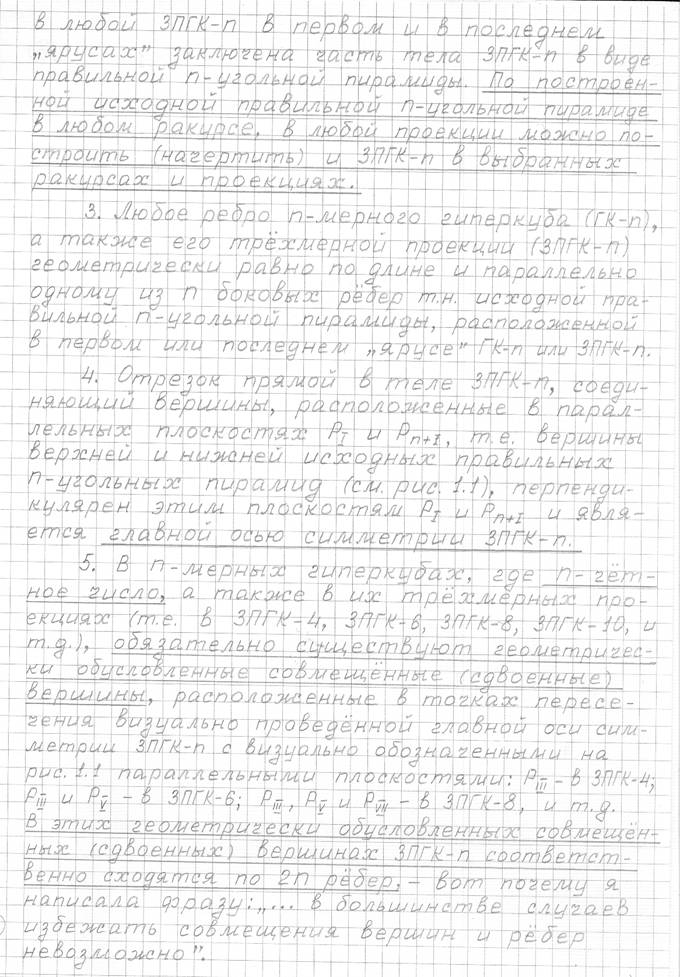 в любой ЗПГК-п в первом и в последнем
„ярусах” заключена часть тела ЗПГК-п в виде
правильной п-угольной пирамиды. По построен-
ной исходной правильной п-угольной пирамиде
в любом ракурсе, в любой проекции можно по-
строить (начертить) и ЗПГК-п в выбранных
ракурсах и проекциях.
3. Любое ребро п-мерного гиперкуба (ГК-п),
а также его трёхмерной проекции (ЗПГК-п)
геометрически равно по длине и параллельно
одному из п боковых рёбер т.н. исходной пра-
вильной п-угольной пирамиды, расположенной
в первом или последнем „ярусе” ГК-п или ЗПГК-п.
4. Отрезок прямой в теле ЗПГК-п, соеди-
няющий вершины, расположенные в парал-
лельных плоскостях P_I и P_п+I, т.е. вершины
верхней и нижней исходных правильных
п-угольных пирамид (см. рис. 1.1), перпенди-
кулярен этим плоскостям P_I и P_п+I и явля-
ется главной осью симметрии ЗПГК-п.
5. В п-мерных гиперкубах, где п-чёт-
ное число, а также в их трёхмерных про-
екциях (т.е. в ЗПГК-4, ЗПГК-6, ЗПГК-8, ЗПГК-10, и
т.д.), обязательно существуют геометричес-
ки обусловленные совмещённые (сдвоенные)
вершины, расположенные в точках пересе-
чения визуально проведённой главной оси сим-
метрии ЗПГК-п с визуально обозначенными на
рис. 1.1 параллельными плоскостями: P_III – в ЗПГК-4;
P_III и P_V – в ЗПГК-6; P_III, P_V и P_VII – в ЗПГК-8, и т.д.
В этих геометрически обусловленных совмещён-
ных (сдвоенных) вершинах ЗПГК-п соответст-
венно сходятся по 2п рёбер, – вот почему я
написала фразу: „... в большинстве случаев
избежать совмещения вершин и рёбер
невозможно”.